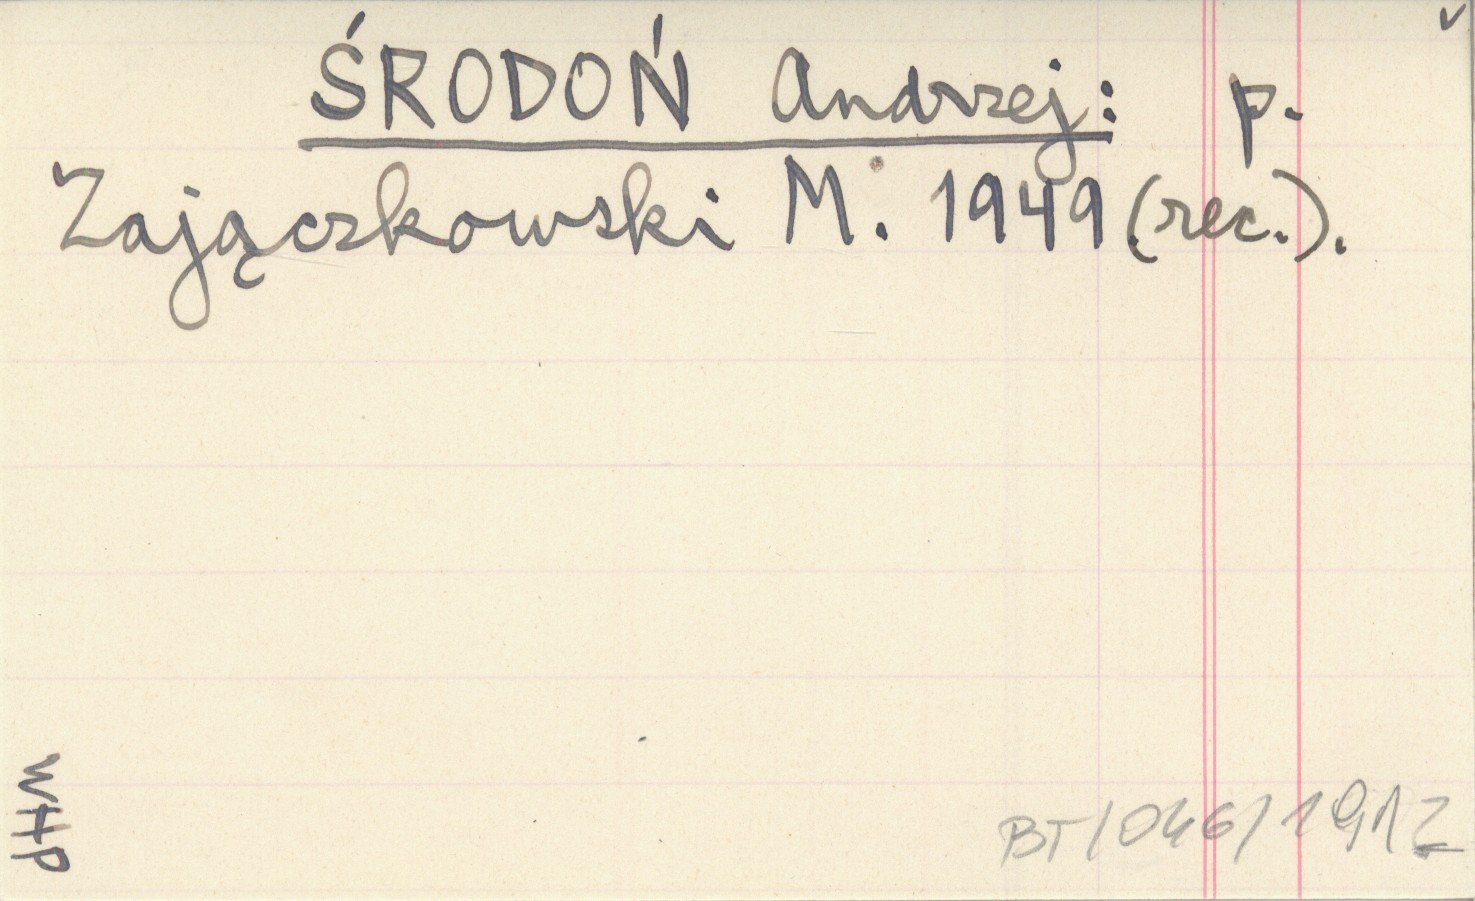 ŚRODOŃ Andrzej: p.
Zajączkowski M. 1949 (rec.).
WHP
BT/046/1912